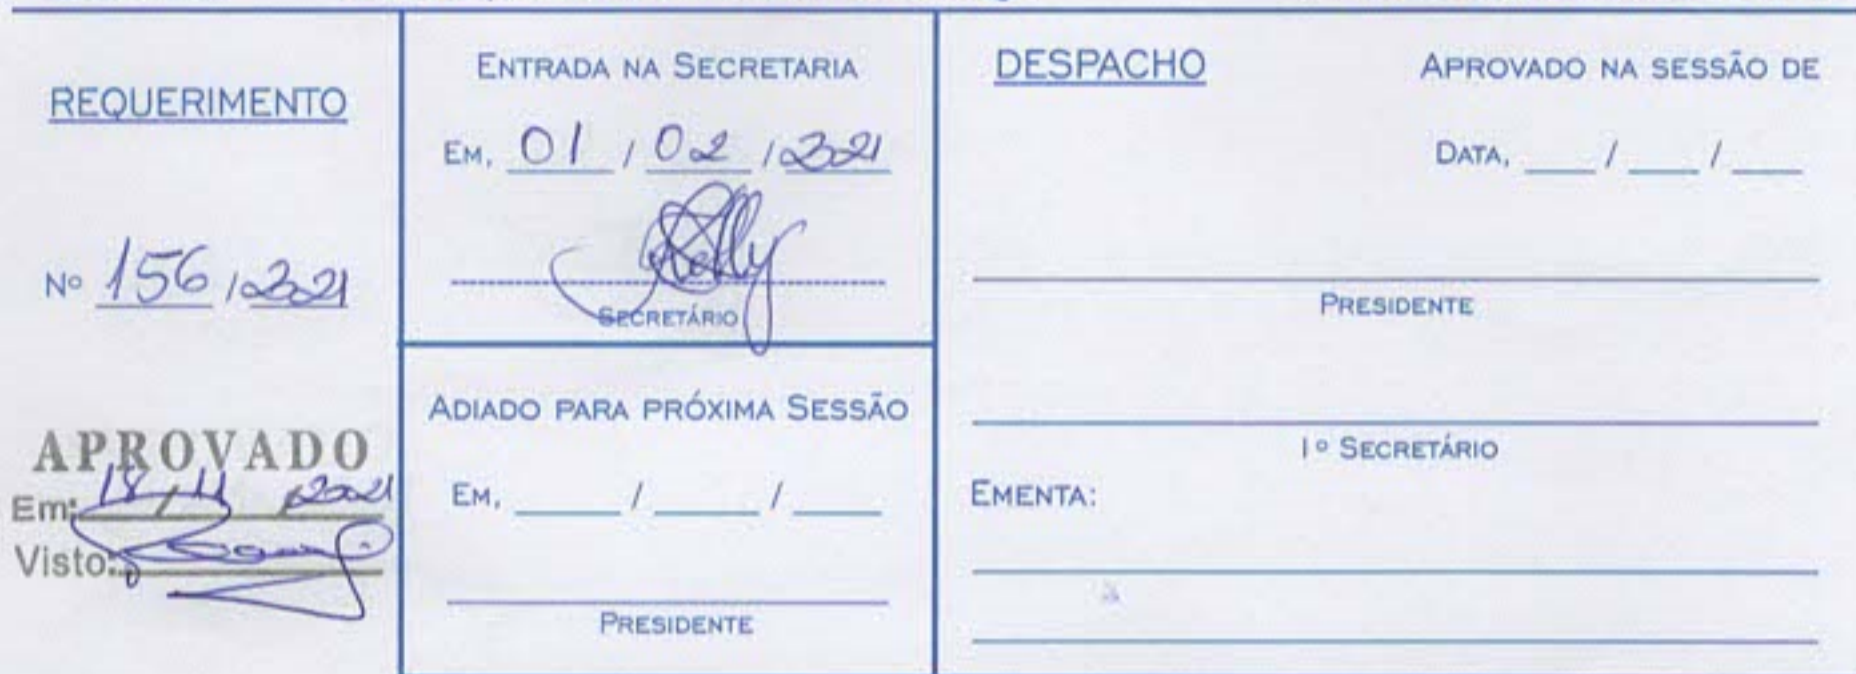 REQUERIMENTO
Nº 156 / 2021
APROVADO
Em: 18 / 11 / 2021
Visto:
ENTRADA NA SECRETARIA
EM, 01 / 02 / 2021
SECRETÁRIO
ADIADO PARA PRÓXIMA SESSÃO
EM, ____ / ____ / ____
PRESIDENTE
DESPACHO
APROVADO NA SESSÃO DE
DATA, ___ / ___ / ___
PRESIDENTE
1º SECRETÁRIO
EMENTA: